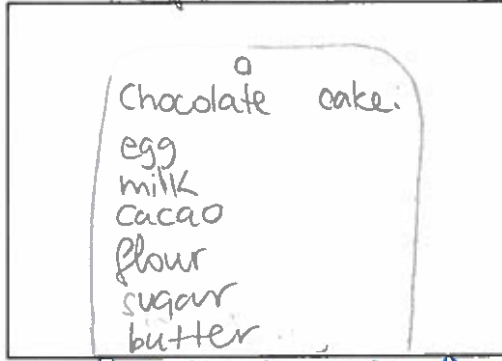 Chocolate cake.
egg
milk
cacao
flour
sugar
butter